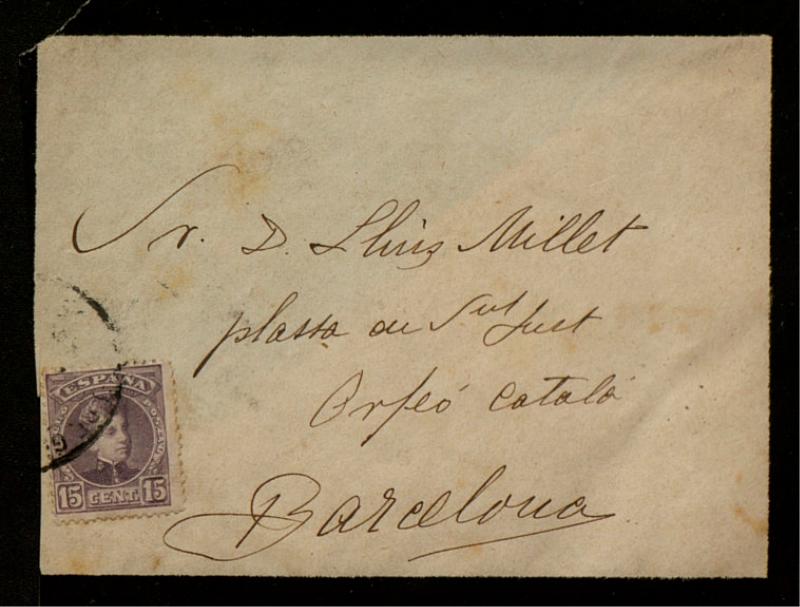 Sr. D. Lluis Millet
plassa de Sant Just
Orfeó Catalá
Barcelona
ESPAÑA
15 CENT. 15